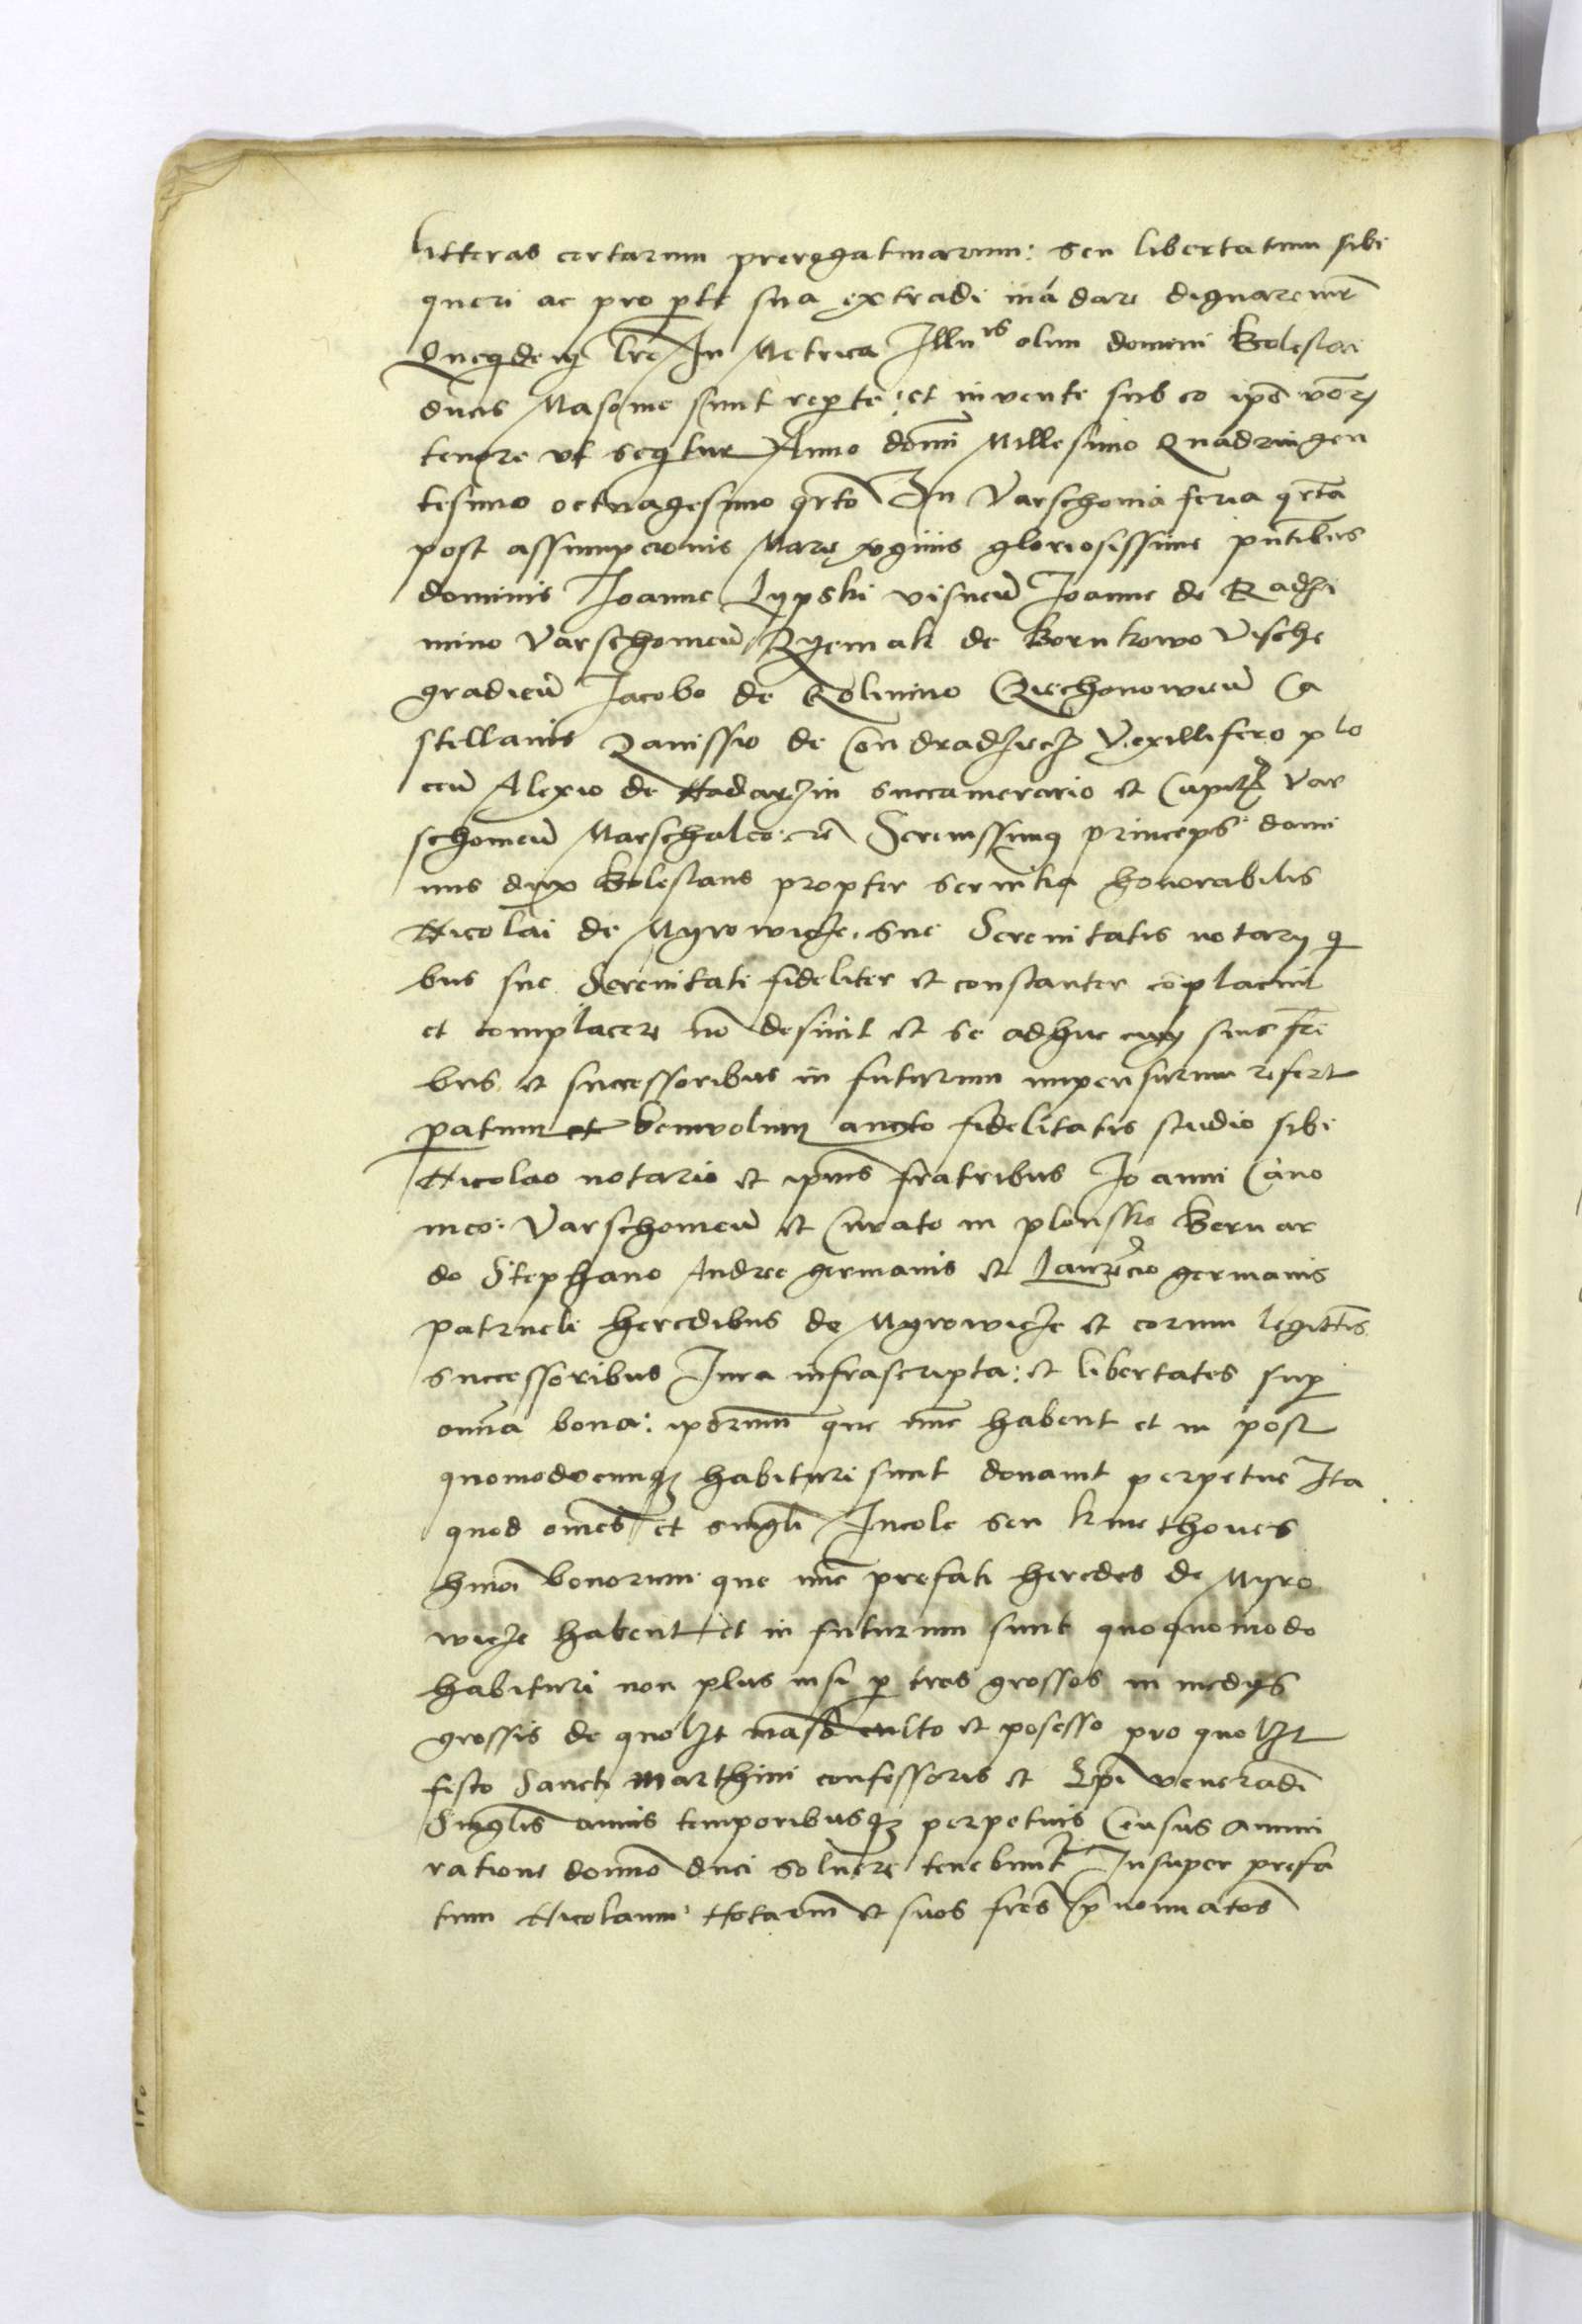 litteras certarum prerogatiuarum: seu libertatum sibi
queri ac pro pte sua extradi mādare dignaremur
Quequidem lre In Metrica Illu͏ͥˢ olim domini Boleslai
ducis Masouie sunt reperte: et inuente sub eo ipo vero
tenore vt sequitur Anno domi Millesimo Quadringen
tesimo octuagesimo qrto In Varschouia feria qrta
post assumpcionis Marie vginis gloriosissime pntibus
dominis Joanne Lypski visneń Joanne de Radzi
mino Varschouień Zyemak de Bornkowo Vische
gradień Jacobo de Golimino Cziechonowień Ca
stellanis Danissio de Condradzicz Vexillifero plo
ceń Alexio de Nadarzin succamerario et Capit Var
schouień Marschalco: etc Serenissimus princeps: domi
nus dux Boleslaus propter seruitia honorabilis
Nicolai de Myrowicze, sue Serenitatis notarij qi
bus sue Serenitati fideliter et constanter cōplacuit
et complacere nō desinit et se adhuc cum suis fri
bus et successoribus in futurum impensurum refert
paratum et beniuolum aucto fidelitatis studio sibi
Nicolao notario et ipius fratribus Joanni Cano
nico: Varschouień et Curato in plonsko Bernar
do Stephano Andree germanis et Laurēcio germanis
patrueli heredibus de Myrowicze et eorum legittis
successoribus Jura infrascripta: et libertates sup
omnia bona: ipsorum que nunc habent et in post
quomodocunque habituri sunt donauit perpetue Ita
quod omes et singli Incole seu kmethones
hmoi bonorum que nunc prefati heredes de Myro
wicze habent et in futurum sunt quoquomodo
habituri non plus nisi p tres grossos in medijs
grossis de quolzt manso culto et posesso pro quolzt
festo Sancti Marthini confessoris et Epi venerādi
Singlis annis temporibusq perpetuis Census annui
ratione domno duci soluere tenebunt Insuper prefa
tum Nicolaum: Notarium et suos fres pnominatos